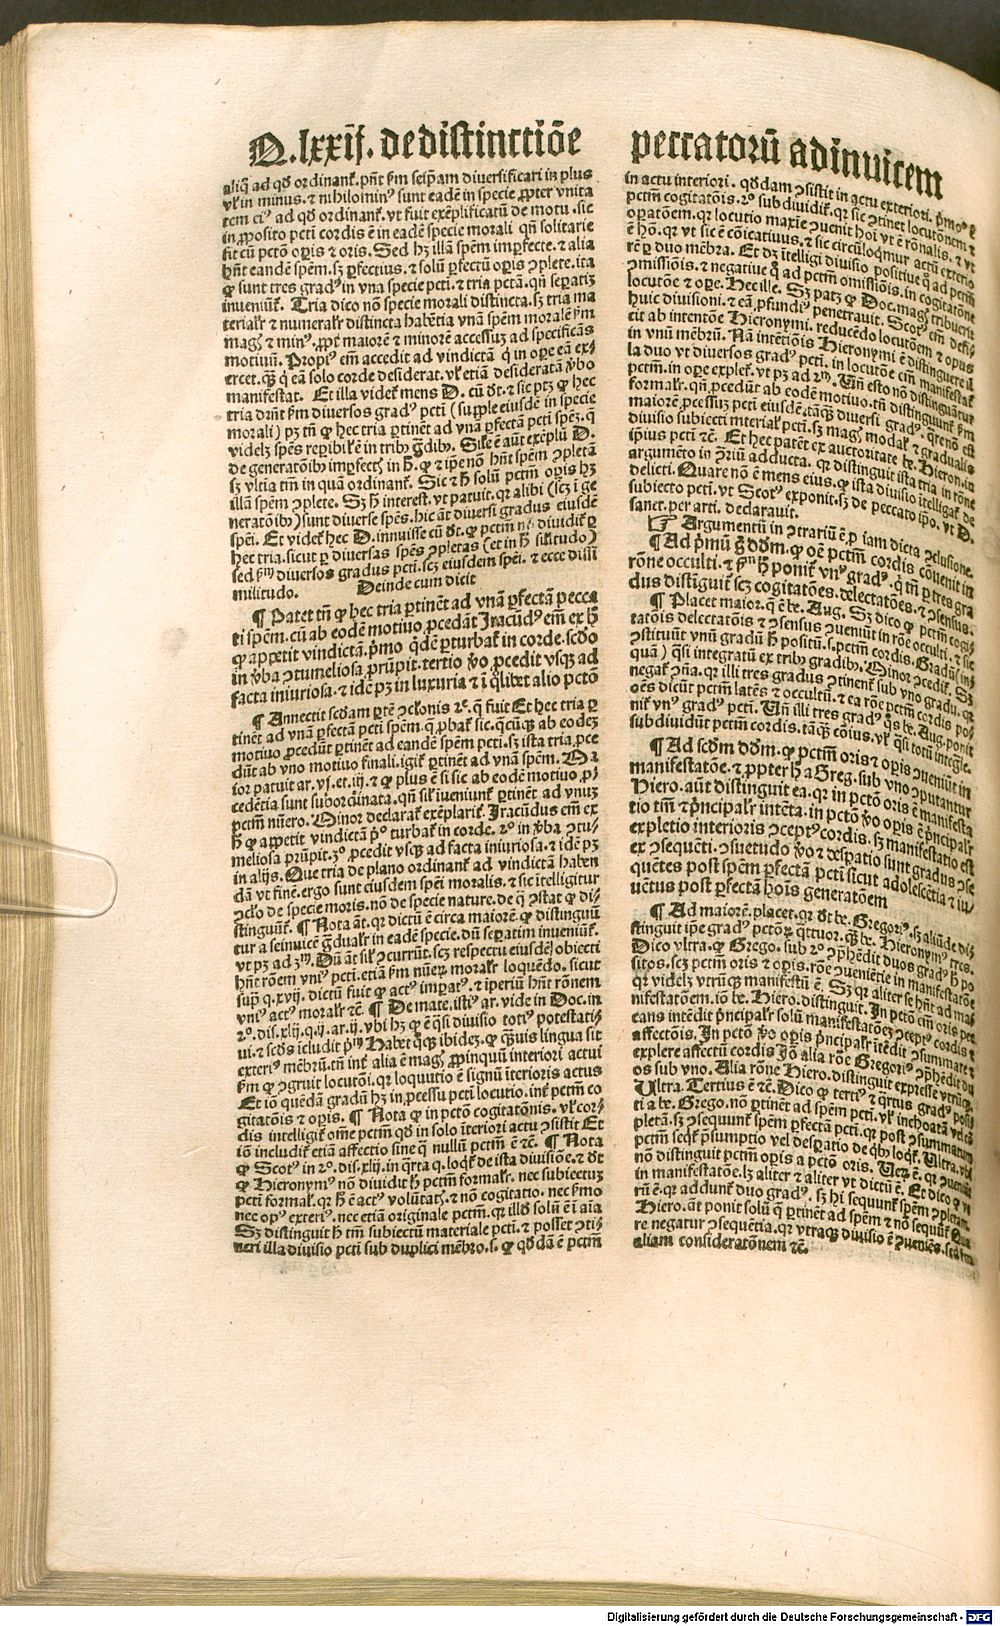 Q.lxxij. de distinctiõe
aliq̃ ad qđ ordinant᷑. pñt ẜm seip̃am diuersificari in plus
vl̓ in minus. ⁊ nihilomin⁹ sunt eadẽ in specie ꝓpter vnita
tem ei⁹ ad qđ ordinant᷑. vt fuit exẽplificatũ de motu. sic
in ꝓposito pctĩ cordis ẽ in eadẽ specie morali qñ solitarie
fit cũ pctõ oꝑis ⁊ oris. Sed hꝫ illã spẽm imperfecte. ⁊ alia
hñt eandẽ spẽm. sꝫ ꝑfectius. ⁊ solũ ꝑfectũ oꝑis ↄplete. ita
ꝙ sunt tres grad⁹ in vna specie pcti. ⁊ tria pctã. qñ seꝑatĩ
inueniunt᷑. Tria dico nõ specie morali distincta. sꝫ tria ma
terialr̃ ⁊ numeralr̃ distincta habẽtia vnã spẽm moralẽ ẜm
mag⁹ ⁊ min⁹. ꝓpt̃ maiorẽ ⁊ minorẽ accessuꝫ ad specificãs
motiuũ. Propi⁹ em̃ accedit ad vindictã q̃ in oꝑe eã ex⸗
ercet. q̃ꝫ q̃ eã solo corde desiderat. vl̓ etiã desideratã ṽbo
manifestat. Et illa videt᷑ mens D. cũ đt. ⁊ sic ptꝫ ꝙ hec
tria drñt ẜm diuersos grad⁹ pcti (supple eiusdẽ in specie
morali) pꝫ tñ ꝙ hec tria ꝑtinẽt ad vnã ꝑfectã pcti speẽ. q̃
videlꝫ spẽs reꝑibil̓ ẽ in tribꝰ g̃dibꝰ. Sil̓e ẽ aũt exẽplũ D.
de generatõibꝰ imꝑfectꝭ in h̃. ꝙ ⁊ ip̃e nõ hñt spẽm ↄpletã
sꝫ vltia tm̃ in quã ordinant᷑. Sic ⁊ h̃ solũ pctm̃ oꝑis hꝫ
illã spẽm ↄplete. Sꝫ h̃ interest. vt patuit. qr alibi (scꝫ ĩ ge
neratõibꝰ) sunt diuerse spẽs. hic aũt diuersi gradus eiusdẽ
spẽi. Et videt᷑ hec D. innuisse cũ đt. ꝙ pctm̃ nõ diuidit᷑ ꝑ
hec tria. sicut ꝑ diuersas spẽs ↄpletas (et in h̃ silitudo)
sed ẜm diuersos gradus pcti. scꝫ eiusdem spẽi. ⁊ ecce dissĩ
militudo. Deinde cum dicit
¶ Patet tñ ꝙ hec tria ꝑtinẽt ad vnã ꝑfectã pecca
ti spẽm. cũ ab eodẽ motiuo ꝓcedãt Iracũd⁹ em̃ ex h̃
ꝙ appetit vindictã. p̃mo q̃dẽ ꝑturbat᷑ in corde. scđo
in ṽba ↄtumeliosa ꝓrũpit. tertio ṽo ꝓcedit vsqꝫ ad
facta iniuriosa. ⁊ idẽ pꝫ in luxuria ⁊ ĩ q̃libet alio pctõ
¶ Annectit scđam ꝑtẽ ↄcl̓onis ⁊c̃. q̃ fuit Et hec tria ꝑ
tinẽt ad vnã ꝑfectã pcti spẽm. q̃ ꝓbat᷑ sic. q̃cũqꝫ ab eodeꝫ
motiuo ꝓcedũt ꝑtinẽt ad eandẽ spẽm pcti. sꝫ ista tria ꝓce
dũt ab vno motiuo finali. igit᷑ ꝑtinẽt ad vnã spẽm. Ma
ior patuit ar. vj. et. iij. ⁊ ꝙ plus ẽ si sic ab eodẽ motiuo ꝓ⸗
cedẽtia sunt subordinata. qñ sil̓ inueniunt᷑ ꝑtinẽt ad vnuꝫ
pctm̃ nũero. Minor declarat᷑ exẽplarit᷑. Iracũdus em̃ ex
h̃ ꝙ appetit vindictã p̃° turbat᷑ in corde. 2° in ṽba ↄtu⸗
meliosa ꝓrũpit. 3°. ꝓcedit vsqꝫ ad facta iniuriosa. ⁊ idẽ pꝫ
in alijs. Que tria de plano ordinant᷑ ad vindictã haben
dã vt finẽ. ergo sunt eiusdem spẽi moralis. ⁊ sic ĩtelligitur
ↄcl̓o de specie moris. nõ de specie nature. de q̃ ↄstat ꝙ di⸗
stinguũt᷑. ¶ Nota aũt. qr dictũ ẽ circa maiorẽ. ꝙ distinguũ
tur a seinuicẽ g̃dualr̃ in eadẽ specie. dũ seꝑatim inueniũt᷑.
vt pꝫ ad 3ᵐ. Dũ aũt sil̓ ↄcurrũt. scꝫ respectu eiusdẽ obiecti
hñt rõem vni⁹ pcti. etiã ẜm nũeꝝ moralr̃ loquẽdo. sicut
sup̃ q. xvij. dictũ fuit ꝙ act⁹ imꝑat⁹. ⁊ iperiũ hñt rõnem
vni⁹ act⁹ moralr̃ ⁊c̃. ¶ De mate. isti⁹ ar. vide in Doc. in
2°. dis. xlij. q. ij. ar. ij. vbi hꝫ ꝙ ẽ q̃si diuisio toti⁹ potestati⸗
ui. ⁊ scđs icludit p̃ᵐ Habet᷑ q̃qꝫ ibideꝫ. ꝙ q̃ꝫuis lingua sit
exteri⁹ mẽbrũ. tñ int᷑ alia ẽ mag⁹ ꝓpinquũ interiori actui
ẜm ꝙ ↄgruit locutõi. qr loquutio ẽ signũ iterioris actus
Et iõ quẽdã gradũ hꝫ in ꝓcessu pcti locutio. int᷑ pctm̃ co
gitatõis ⁊ oꝑis. ¶ Nota ꝙ in pctõ cogitatõnis. vl̓ cor⸗
dis intelligit᷑ om̃e pctm̃ qđ in solo iteriori actu ↄsistit Et
iõ includit᷑ etiã affectio sine q̃ nullũ pctm̃ ẽ ⁊c̃. ¶ Nota
ꝙ Scot⁹ in 2°. dis. xlij. in q̃rta q. loqt᷑ de ista diuisiõe. ⁊ đt
ꝙ Hieronym⁹ nõ diuidit h̃ pctm̃ formalr̃. nec subiectuꝫ
pcti formal̓. qr h̃ ẽ act⁹ volũtatꝭ. ⁊ nõ cogitatio. nec p̃mo
nec op⁹ exteri⁹. nec etiã originale pctm̃. qr illđ solũ ẽ ĩ aĩa
Sꝫ distinguit h̃ tm̃ subiectũ materiale pcti. ⁊ posset ↄti⸗
neri illa diuisio pcti sub duplici mẽbro. s. ꝙ qđdã ẽ pctm̃
peccatorũ adinuicem
in actu interiori. qđdam ↄsistit in actu exteriori. p̃mo⁹ ẽ
pctm̃ cogitatõis. 2° sub diuidit᷑. qr sic ↄtinet locutõnem ⁊
oꝑatõem. qr locutio maxĩe ↄuenit hoĩ vt ẽ rõnalis. ⁊ vt
ẽ hõ. qr vt sic ẽ cõicatiuus. ⁊ sic circũloqmur actũ exterio
rẽ ꝑ duo mẽbra. Et dꝫ ĩtelligi diuisio positiue q̃ ad pctm̃
ↄmissiõis. ⁊ negatiue q̃ ad pctm̃ omissiõis. in cogitatõne
locutõe ⁊ oꝑe. Hec ille. Sꝫ patꝫ ꝙ Doc. magꝭ tribuerit
huic diuisioni. ⁊ eã ꝓfundi⁹ penetrauit. Scot⁹ em̃ defi⸗
cit ab intentõe Hieronymi. reducẽdo locutõem ⁊ opus
in vnũ mẽbrũ. Nã intẽtiõis Hieronymi ẽ distinguere il
la duo vt diuersos grad⁹ pcti. in locutõe em̃ manifestat᷑
pctm̃. in oꝑe explet᷑. vt pꝫ ad 2ᵐ. Vñ esto nõ distinguãtur
formalr̃. qñ ꝓcedũt ab eodẽ motiuo. tñ distinguunt᷑ ẜm
maiorẽ ꝓcessuꝫ pcti eiusdẽ. tãqꝫ diuersi grad⁹. q̃re nõ est
diuisio subiecti mterial̓ pcti. sꝫ mag⁹ modal̓ ⁊ gradualis
ip̃ius pcti ⁊c̃. Et hec patẽt ex auctoritate be. Hieron. in
argumẽto in ↄ̃riũ adducta. qr distinguit ista tria in rõne
delicti. Quare nõ ẽ mens eius. ꝙ ista diuisio ĩtelligat᷑ de
subiecto pcti. vt Scot⁹ exponit. sꝫ de peccato ip̃o. vt D.
sanct. per arti. declarauit.
☞ Argumentũ in ↄtrariũ ẽ ꝓ iam dicta ↄclusione.
¶ Ad p̃mũ g̃ đđm. ꝙ oẽ pctm̃ cordis cõuenit in
rõne occulti. ⁊ ẜm h̃ ponit᷑ vn⁹ grad⁹. q̃ tñ ꝑ tres gra
dus distĩguit᷑ scꝫ cogitatões. delectatões. ⁊ ↄsensus.
¶ Placet maior. q̃ ẽ be. Aug. Sꝫ dico ꝙ pctm̃ cogi⸗
tatõis delectatõis ⁊ ↄsensus ↄueniũt in rõe occulti. ⁊ sic
ↄstituũt vnũ gradũ h̃ positũ. s. pctm̃ cordis. Gradũ (in⸗
quã) q̃si integratũ ex tribꝰ gradibꝰ. Minor ↄcedit᷑. Sꝫ
negat᷑ ↄña. qr illi tres gradus ↄtinent᷑ sub vno gradu. qr
oẽs dicũt pctm̃ latẽs ⁊ occultũ. ⁊ ea rõe pctm̃ cordis po⸗
nit᷑ vn⁹ grad⁹ pcti. Vñ illi tres grad⁹ q̃s be. Aug. ponit
subdiuidũt pctm̃ cordis. tãqꝫ cõius. vl̓ q̃si totũ integr̃le.
¶ Ad scđm đđm. ꝙ pctm̃ oris ⁊ oꝑis ↄueniũt in
manifestatõe. ⁊ ꝓpter h̃ a Greg. sub vno ↄputantur
Hiero. aũt distinguit ea. qr in pctõ oris ẽ manifesta
tio tm̃ ⁊ p̃ncipalr̃ intẽta. in pctõ ṽo oꝑis ẽ p̃ncipalr̃
expletio interioris ↄcept⁹ cordis. sꝫ manifestatio est
ex ↄsequẽti. ↄsuetudo ṽo ⁊ desꝑatio sunt gradus ↄse
quẽtes post spẽm ꝑfectã pcti sicut adolescẽtia ⁊ iu⸗
uẽtus post ꝑfectã hoĩs generatõem
¶ Ad maiorẽ. placet. qr đt be. Gregori⁹. sꝫ aliũde di⸗
stinguit ip̃e grad⁹ pctõꝝ q̃ttuor. q̃ꝫ be. Hieronym⁹ tres.
Dico vltra. ꝙ Grego. sub 2° ↄp̃hẽdit duos grad⁹ h̃ po
sitos. scꝫ pctm̃ oris ⁊ oꝑis. rõe ↄueniẽtie in manifestatõe
qr videlꝫ vtrũqꝫ manifestũ ẽ. Sꝫ qr aliter se hñt ad ma⸗
nifestatõem. iõ be. Hiero. distinguit. In pctõ em̃ oris pec
cans intẽdit p̃ncipalr̃ solũ manifestatõeꝫ ↄcept⁹ cordis ⁊
affectõis. In pctõ ṽo oꝑis p̃ncipalr̃ itẽdit ↄsummare ⁊
explere affectũ cordis Iõ alia rõe Gregori⁹ ↄp̃hẽdit du
os sub vno. Alia rõne Hiero. distinguit expresse vtrũqꝫ.
Vltra. Tertius ẽ ⁊c̃. Dico ꝙ terti⁹ ⁊ q̃rtus grad⁹ posi⸗
ti a be. Grego. nõ ꝑtinẽt ad spẽm pcti. vl̓ inchoatã vel cõ
pletã. sꝫ ↄsequunt᷑ spẽm ꝑfectã pcti. qr post ↄsummatum
pctm̃ seqt᷑ p̃sumptio vel desꝑatio de qbꝰ loqt᷑. Vltra. vbi
nõ distinguit pctm̃ oꝑis a pctõ oris. Veꝝ ẽ. qr ↄueniũt
in manifestatõe. lꝫ aliter ⁊ aliter vt dictũ ẽ. Et dico ꝙ ve
rũ ẽ. qr addunt᷑ duo grad⁹. sꝫ hi sequunt᷑ spẽm ↄpletam.
Hiero. aũt ponit solũ q̃ ꝑtinẽt ad spẽm ⁊ nõ sequũt᷑ Qua
re negatur ↄsequẽtia. qr vtraqꝫ diuisio ẽ ↄueniẽs. sed ẜm
aliam consideratõnem ⁊c̃.
Digitalisierung gefördert durch die Deutsche Forschungsgemeinschaft - DFG